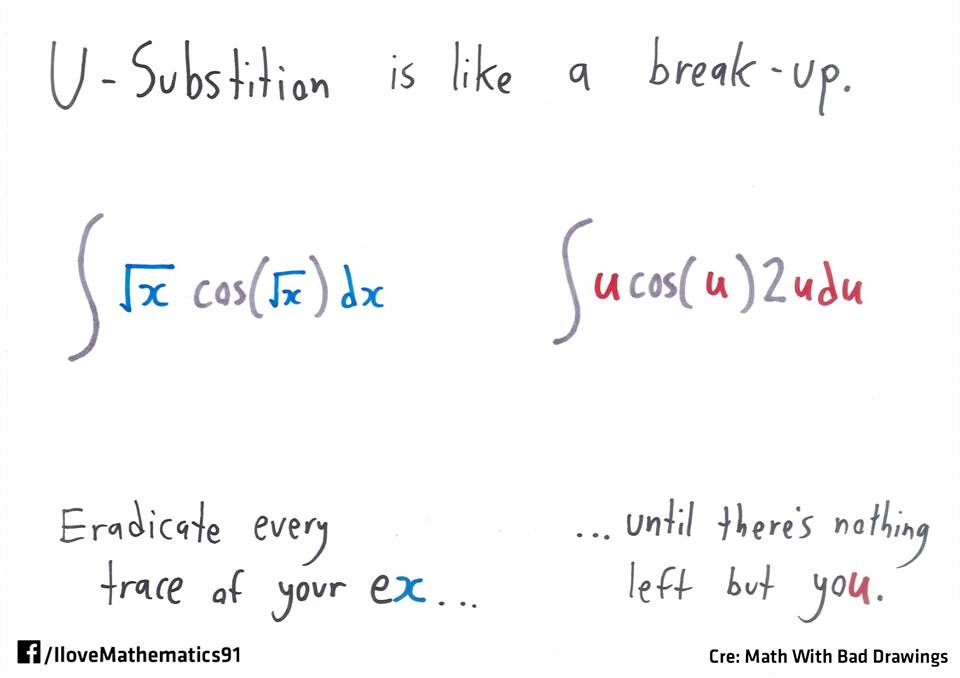 U-Substition is like a break-up.
∫√x cos(√x)dx
∫u cos(u)2udu
Eradicate every
trace of your ex...
...until there's nothing
left but you.
f/IloveMathematics91
Cre: Math With Bad Drawings